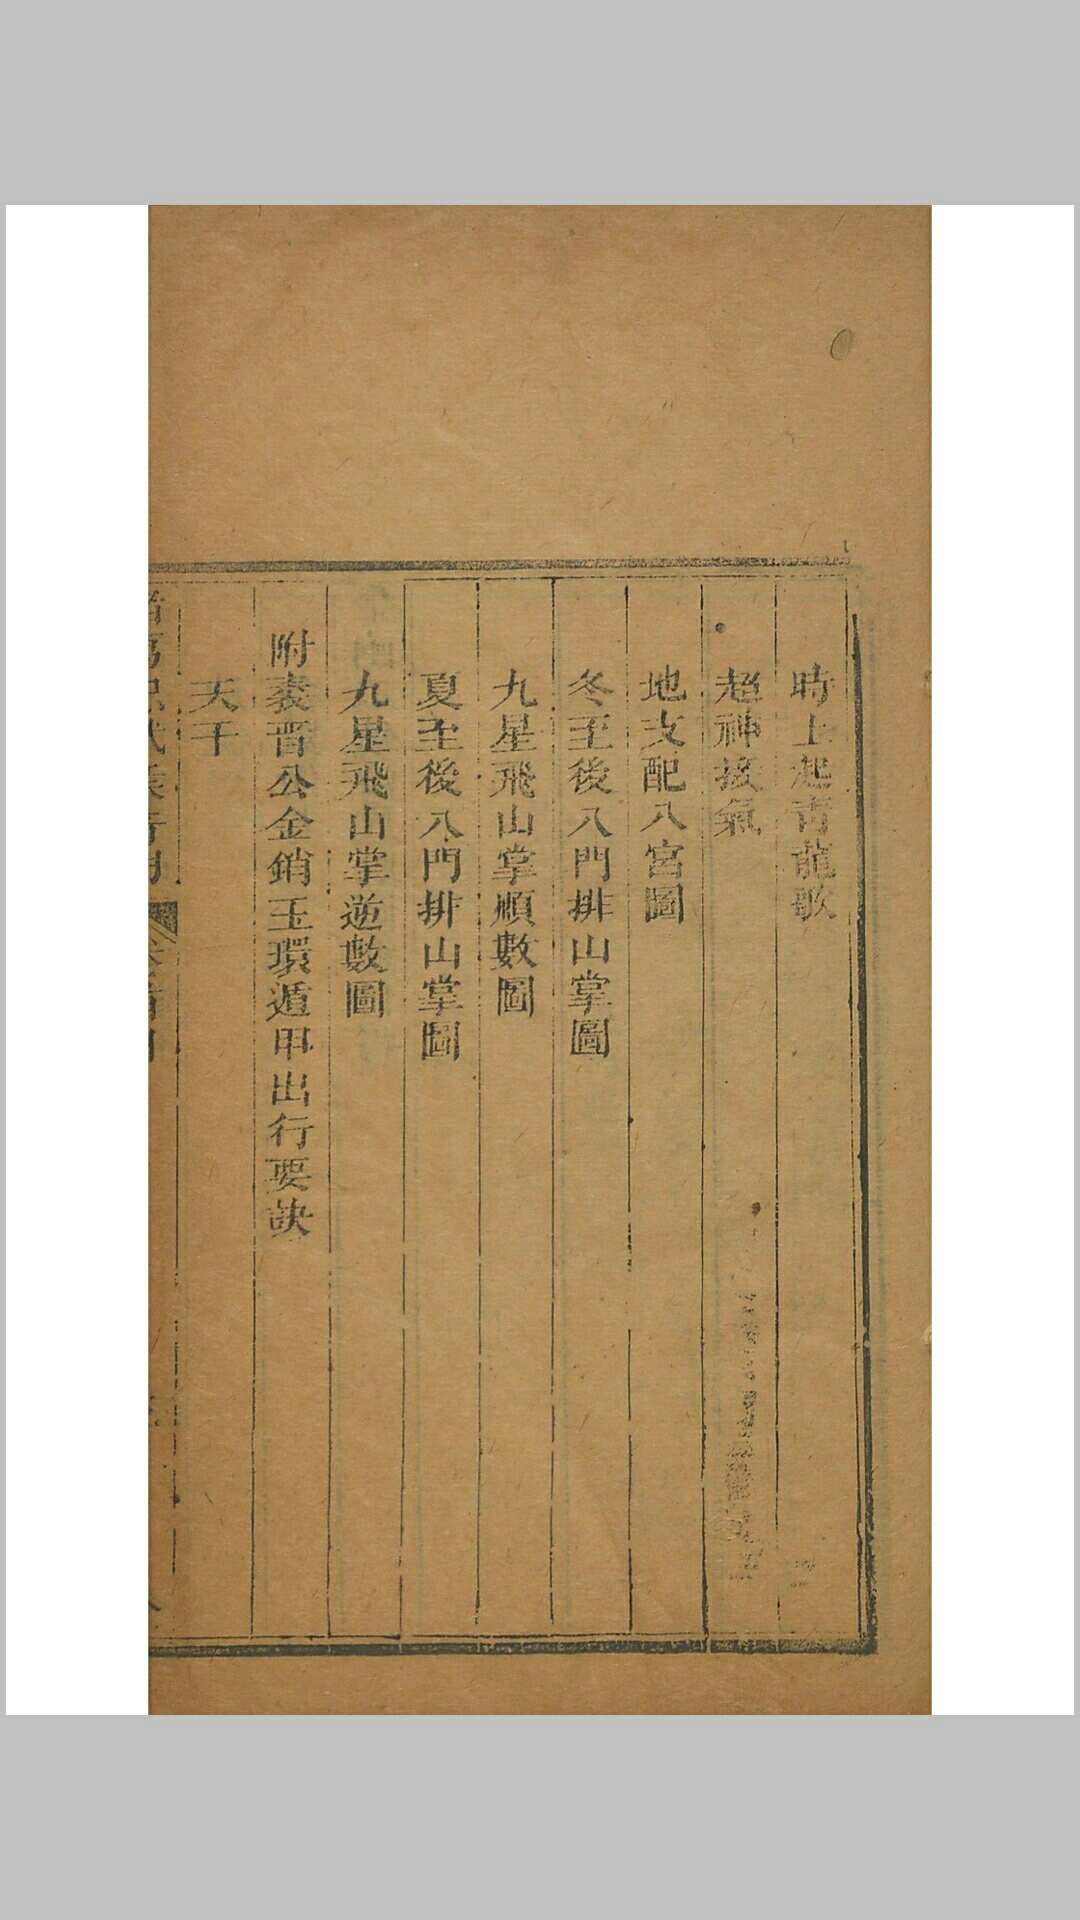 時上起青龍歌
超神接氣
地支配八宮圖
冬至後八門排山掌圖
九星飛山掌順數圖
夏至後八門排山掌圖
九星飛山掌逆數圖
附袁晋公金銷玉環遁甲出行要訣
天干